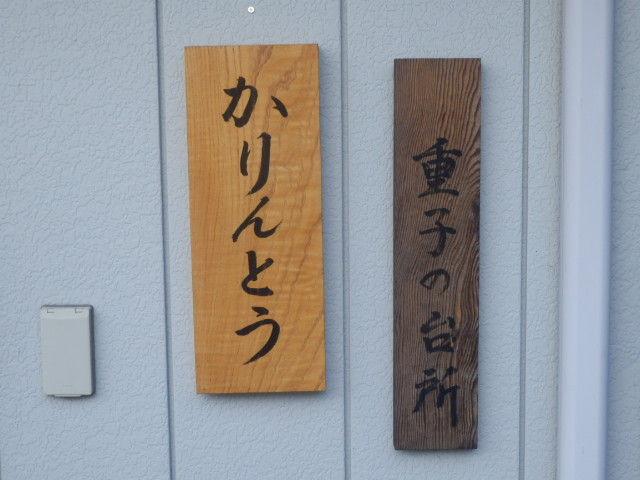 重子の台所
かりんとう